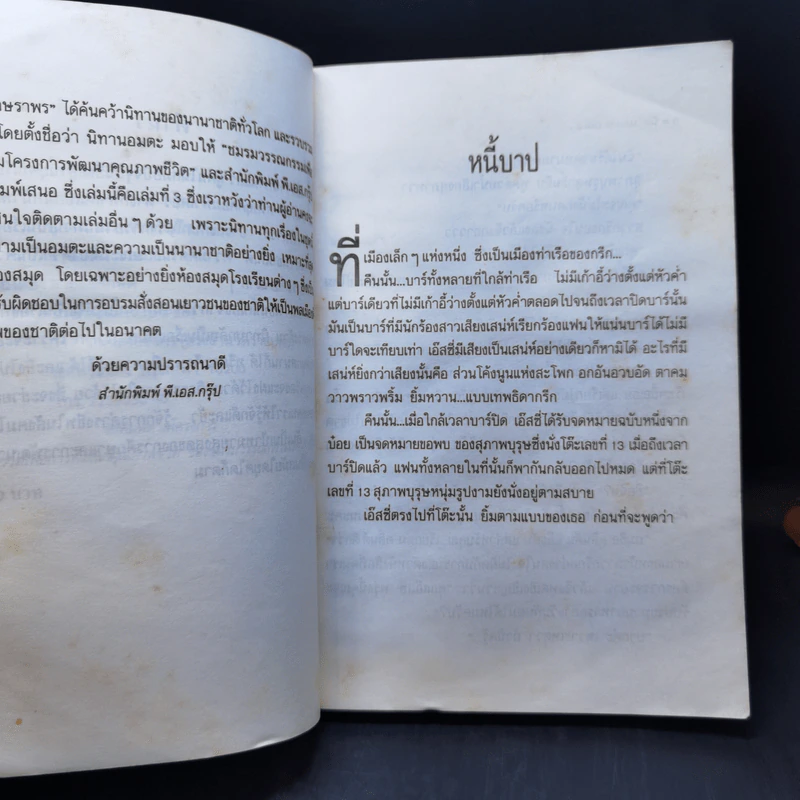 ษราพร" ได้ค้นคว้านิทานของนานาชาติทั่วโลก และรวบรวม
โดยตั้งชื่อว่า นิทานอมตะ มอบให้ "ชมรมวรรณกรรมเพื่อ
มโครงการพัฒนาคุณภาพชีวิต" และสำนักพิมพ์ พี.เอส.กรุ๊ป
มพ์เสนอ ซึ่งเล่มนี้คือเล่มที่ 3 ซึ่งเราหวังว่าท่านผู้อ่านคง
นใจติดตามเล่มอื่น ๆ ด้วย เพราะนิทานทุกเรื่องใน
ามเป็นอมตะและความเป็นนานาชาติอย่างยิ่ง เหมาะที่
องสมุด โดยเฉพาะอย่างยิ่งห้องสมุดโรงเรียนต่าง ๆ ซึ่ง
รับผิดชอบในการอบรมสั่งสอนเยาวชนของชาติให้เป็นพลเมือง
พของชาติต่อไปในอนาคต
ด้วยความปรารถนาดี
สำนักพิมพ์ พี.เอส.กรุ๊ป
หนี้บาป
ที่เมืองเล็ก ๆ แห่งหนึ่ง ซึ่งเป็นเมืองท่าเรือของกรีก...
คืนนั้น...บาร์ทั้งหลายที่ใกล้ท่าเรือ ไม่มีเก้าอี้ว่างตั้งแต่หัวค่ำ
แต่บาร์เดียวที่ไม่มีเก้าอี้ว่างตั้งแต่หัวค่ำตลอดไปจนถึงเวลาปิดบาร์นั้น
มันเป็นบาร์ที่มีนักร้องสาวเสียงเสน่ห์เรียกร้องแฟนให้แน่นบาร์ได้ไม่มี
บาร์ใดจะเทียบเท่า เอ๊สซี่มีเสียงเป็นเสน่ห์อย่างเดียวก็หามิได้ อะไรที่มี
เสน่ห์ยิ่งกว่าเสียงนั้นคือ ส่วนโค้งนูนแห่งสะโพก อกอันอวบอัด ตาคม
วาวพราวพริ้ม ยิ้มหวาน...แบบเทพธิดากรีก
คืนนั้น...เมื่อใกล้เวลาบาร์ปิด เอ๊สซี่ได้รับจดหมายฉบับหนึ่งจาก
บ๋อย เป็นจดหมายขอพบ ของสุภาพบุรุษซึ่งนั่งโต๊ะเลขที่ 13 เมื่อถึงเวลา
บาร์ปิดแล้ว แฟนทั้งหลายในที่นั้นก็พากันกลับออกไปหมด แต่ที่โต๊ะ
เลขที่ 13 สุภาพบุรุษหนุ่มรูปงามยังนั่งอยู่ตามสบาย
เอ๊สซี่ตรงไปที่โต๊ะนั้น ยิ้มตามแบบของเธอ ก่อนที่จะพูดว่า